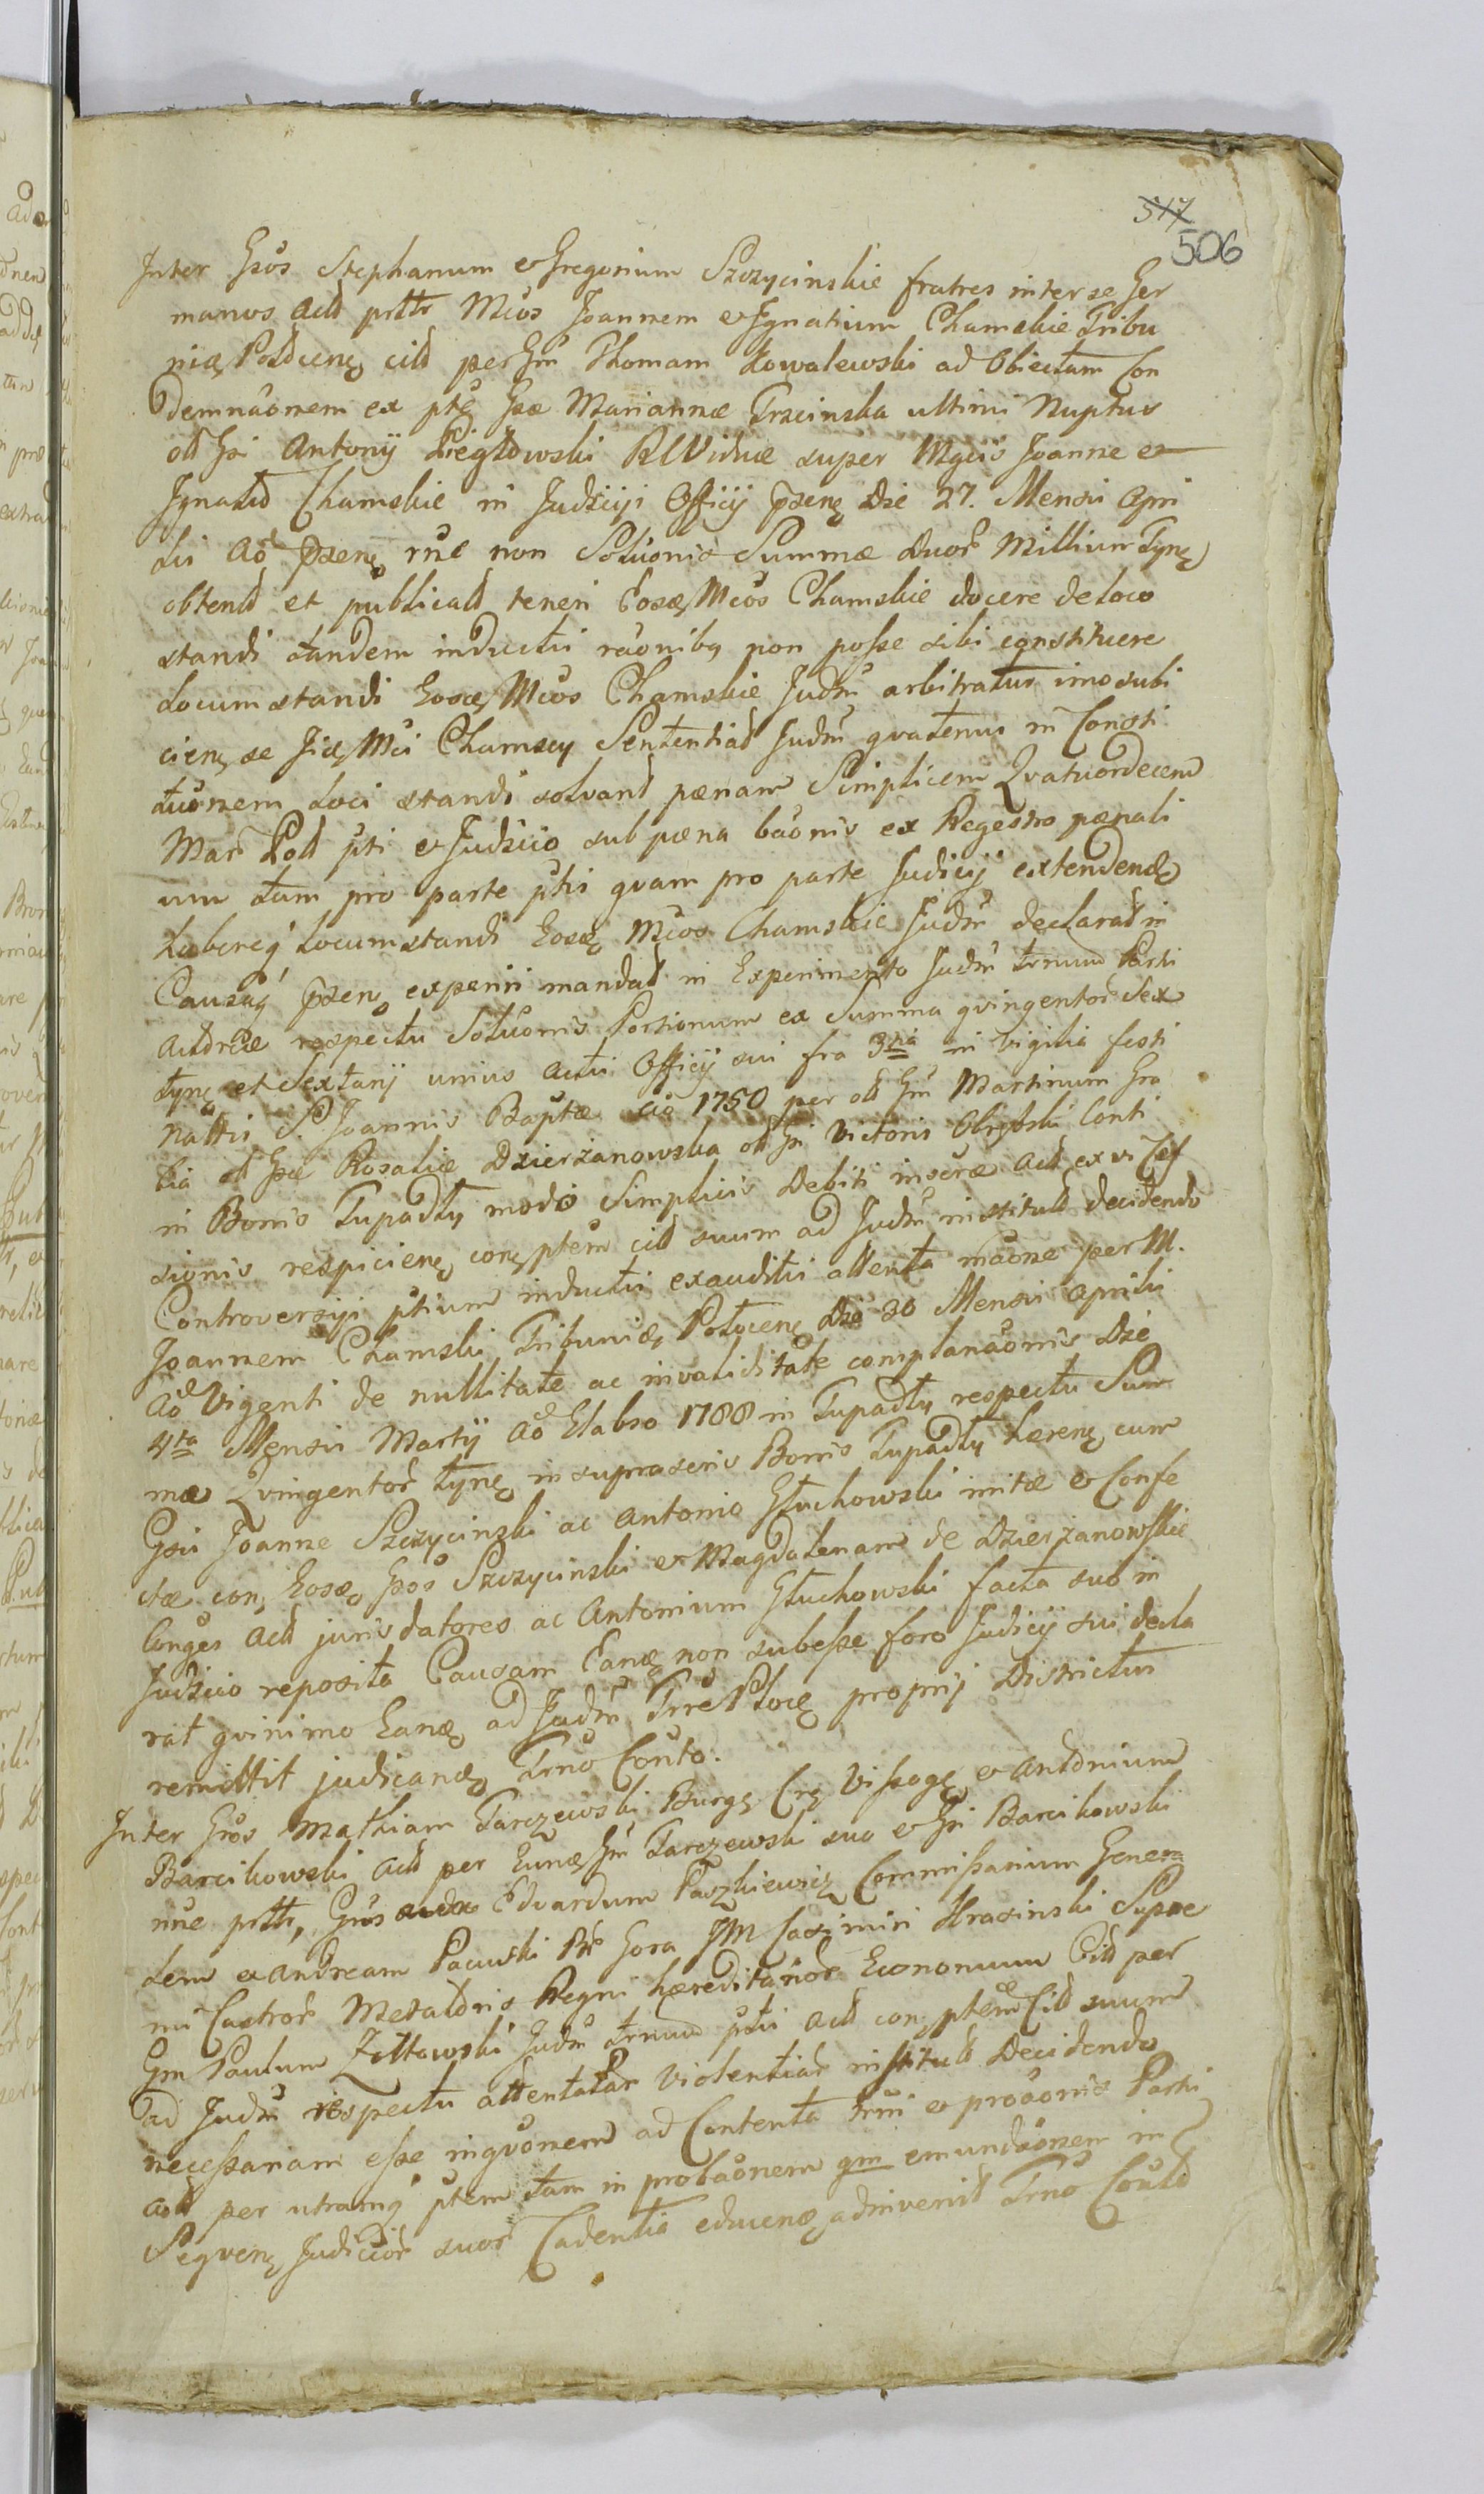 517
506
Inter Gsos Stephanum et Gregorium Szczycinskie fratres inter se Ger
manos Actt prttr Mcos Joannem et Ignatium Chamskie Tribu
nid, Poldcens, citt per Gm Thomam Kowalewski ad Obiectam Con
demnaonem ex pte Gsæ Mariannæ Trzcinska ultimi Nuptus
ott Gsi Antonij Piegłowski RlViduæ super Mgcis Joanne et
Ignatio Chamskie in Judicijs Officij psens die 27. Mensis Apri
lis Aō psens rne non Soluonis Summæ duor Millium Tyns
obtentd et publicatd teneri Eosd, Mcos Chamskie docere de loco
standi tandem inductis raonibq non posse sibi constituere
Locum standi Eosd, Mcos Chamskie Judm arbitratur imo subi
ciens se Jid, Mci Chamscy Sententiæ Judm qvatenus in Consti
tuonem Loci standi solvant pænam Simplicem Qvatuordecem
Mar Poll pti et Judicio sub pæna baonis ex Regestro pænali
um tam pro parte ptis qvam pro parte Judicij extendend
Luberéq Locum standi Eosd, Mcos Chamskie Judm declarat in
Causáq psens experiri mandat in Experimento Judm trnum Parti
Actdreæ respectu Soluonis Portionum ex Summa qvingentor Sex
tyns et Sextarij unius actis Officij sui fra 3tia in Vigilia festi
Nattis S. Joannis Baptæ aō 1750 per ott Gm Martinum Gra
bia ott Gsæ Rosaliæ Dzierżanowska ott Gsi Victoris Obrębski Conti
in Bonis Łupadły modō Simplicis Debiti inscræ Actt ex vi Ces
sionis respiciens, cons, ptem citt suum ad Judm instituto decidendo
Controversijs ptium inductis exauditis attenta maone per M.
Joannem Chamski Tribunid, Potocens die 30 Mensis Aprilis
Aō Vigenti de nullitate ac invaliditate complanaonis die
4ta Mensis Martij Aō Elabso 1788 in Łupadły respectu Sum
mæ Qvingentor tyns, in suprascris Bonis Łupadły hærens, cum
Gsis Joanne Szczycinski ac Antonio Głuchowski initæ et Confe
ctæ con, Eosd, Gsos Szczycinski et Magdalenam de Dzierżanowskie
Conges Actt juris datores ac Antonium Głuchowski facta suo in
Judicio reposita Causam Eand, non subesse foro Judicij sui decla
rat qvinimo Eand, ad Judm Trre Plocs proprij Districtus
remittit judicand, Trno Couto.
Inter Gsos Mathiam Tarczewski Burgs Crs Vissogs et Antonium
Barcikowski Actt per Eund, Gm Tarczewski suo et Gsi Barcikowski
nne prttr, Gsos Eduardum Paszkiewicz Commissarium Genera
lem et Andream Pacuski Gora JM Casimiri Krasinski Supre
mi Castror Metatdris Regni hæreditarior Economum Citt per
Gm Paulum Zołtowski Judm trnum ptis Actt cons ptem Citt suum
ad Judm respectu attentatar Violentiar institutd Decidendo
necessariam esse inqvonem ad Contenta trmi et proaonis Parti
Actt per utramq ptem tam in probaonem qm emundaonem in
Seqvens, Judicior suor Cadentia educend, adinvenit Trno Couto